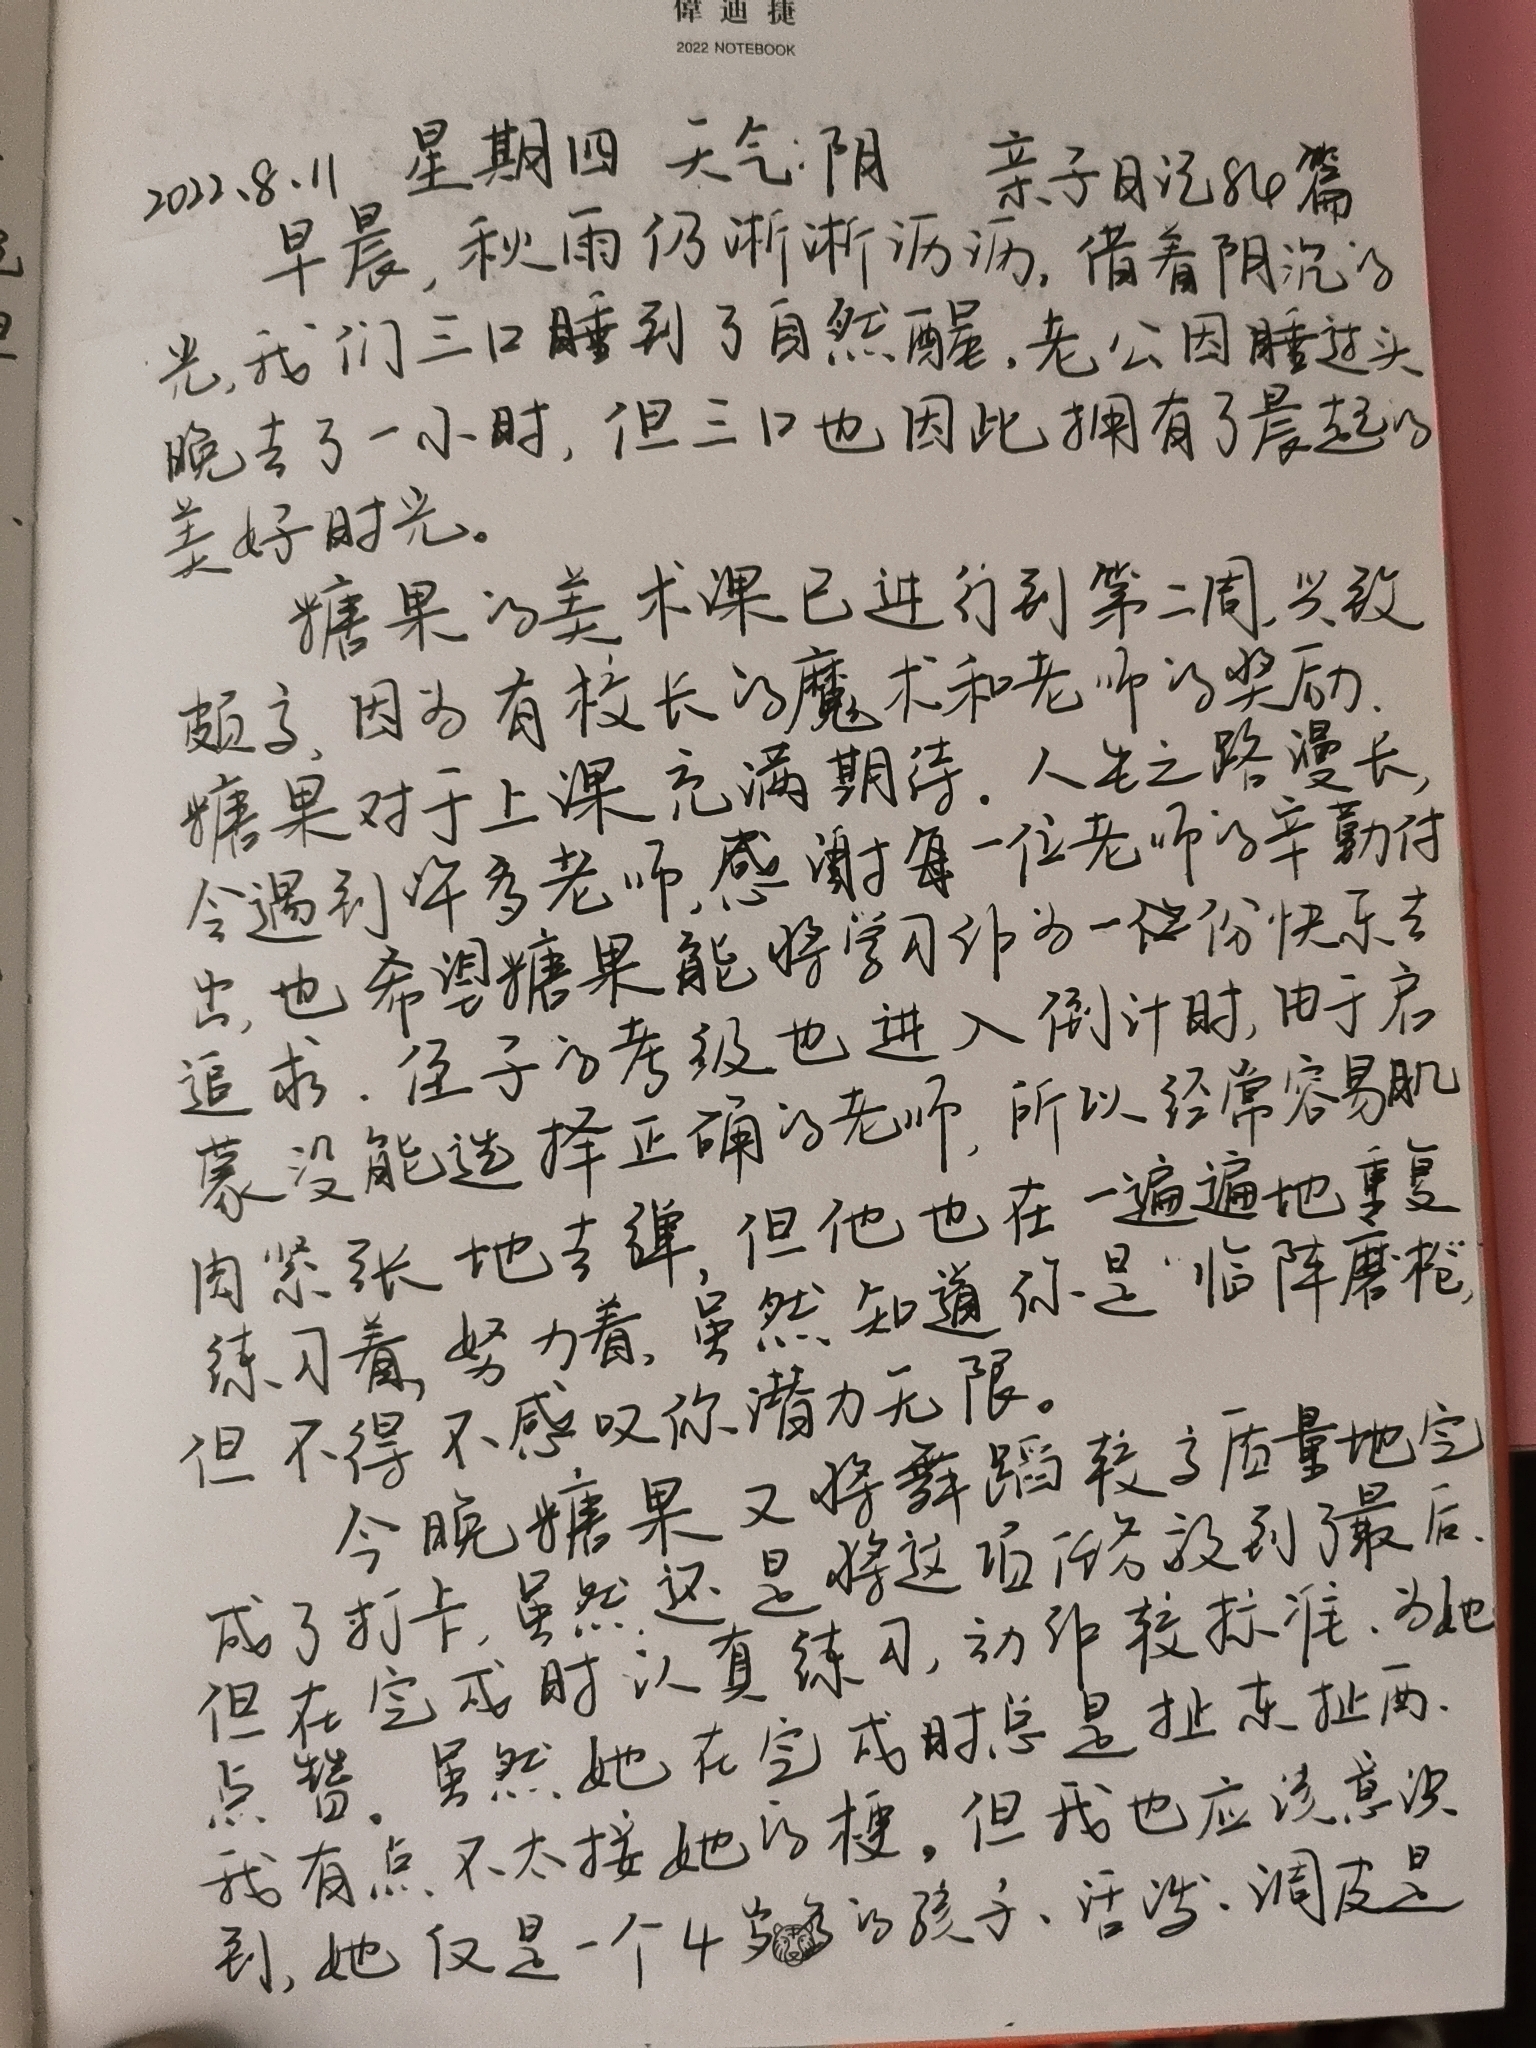 偉迪捷
2022 NOTEBOOK
2022.8.11 星期四 天气:阴 亲子日记84篇
早晨,秋雨仍淅淅沥沥,借着阴沉的
光,我们三口睡到了自然醒,老公因睡过头
晚去了一小时,但三口也因此拥有了晨起的
美好时光。
糖果的美术课已进行到第二周,兴致
颇高,因为有校长的魔术和老师的奖励,
糖果对于上课充满期待。人生之路漫长,
会遇到许多老师,感谢每一位老师的辛勤付
出,也希望糖果能将学习作为一份快乐去
追求。侄子的考级也进入倒计时,由于启
蒙没能选择正确的老师,所以经常容易肌
肉紧张地去弹,但他也在一遍遍地重复
练习着,努力着,虽然知道你是“临阵磨枪,
但不得不感叹你潜力无限。
今晚糖果又将舞蹈较高质量地完
成了打卡,虽然还是将这项任务放到了最后,
但在完成时认真练习,动作较标准,为她
点赞。虽然她在完成时总是扯东扯西,
我有点不太接她的梗。但我也应该意识
到,她仅是一个4岁多的孩子、活泼、调皮是